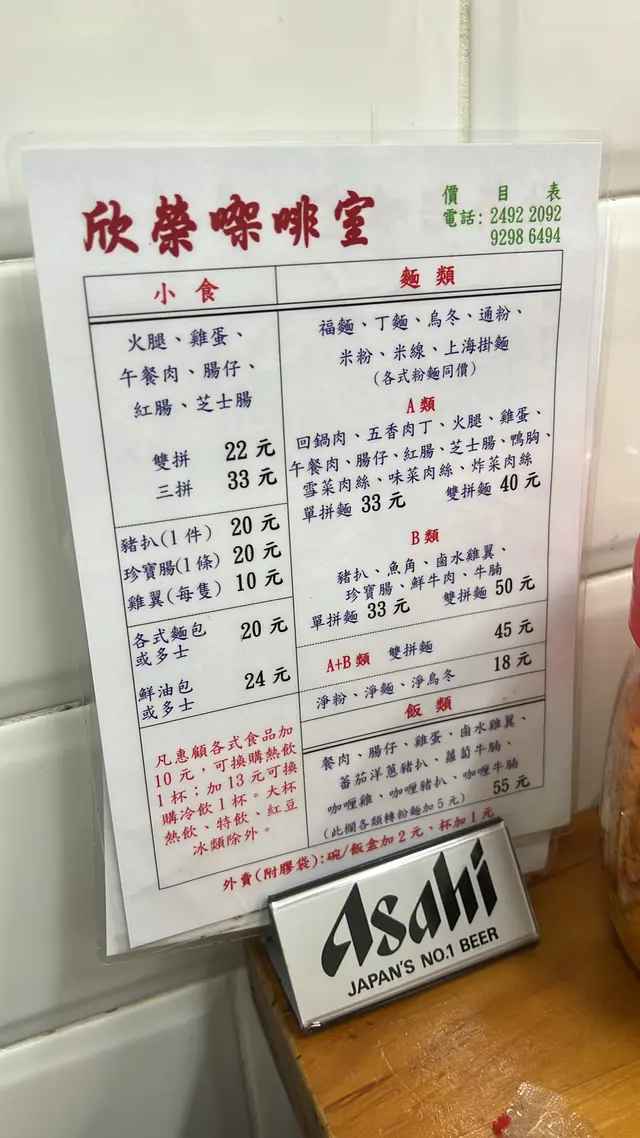 欣榮㗎啡室
價目表
電話: 2492 2092
9298 6494
小食
火腿、雞蛋、
午餐肉、腸仔、
紅腸、芝士腸
雙拼 22 元
三拼 33 元
豬扒(1 件) 20 元
珍寶腸(1 條) 20 元
雞翼(每隻) 10 元
各式麵包
或多士 20 元
鮮油包
或多士 24 元
凡惠顧各式食品加
10 元，可換購熱飲
1 杯；加 13 元可換
購冷飲 1 杯。大杯
熱飲、特飲、紅豆
冰類除外。
麵類
福麵、丁麵、烏冬、通粉、
米粉、米線、上海掛麵
(各式粉麵同價)
A 類
回鍋肉、五香肉丁、火腿、雞蛋、
午餐肉、腸仔、紅腸、芝士腸、鴨胸、
雪菜肉絲、味菜肉絲、炸菜肉絲
單拼麵 33 元 雙拼麵 40 元
B 類
豬扒、魚角、鹵水雞翼、
珍寶腸、鮮牛肉、牛腩
單拼麵 33 元 雙拼麵 50 元
A+B 類 雙拼麵 45 元
淨粉、淨麵、淨烏冬 18 元
飯類
餐肉、腸仔、雞蛋、鹵水雞翼、
蕃茄洋蔥豬扒、蘿蔔牛腩、
咖喱雞、咖喱豬扒、咖喱牛腩
(此欄各類轉粉麵加 5 元) 55 元
外賣(附膠袋):碗/飯盒加 2 元、杯加 1 元
Asahi
JAPAN'S NO.1 BEER